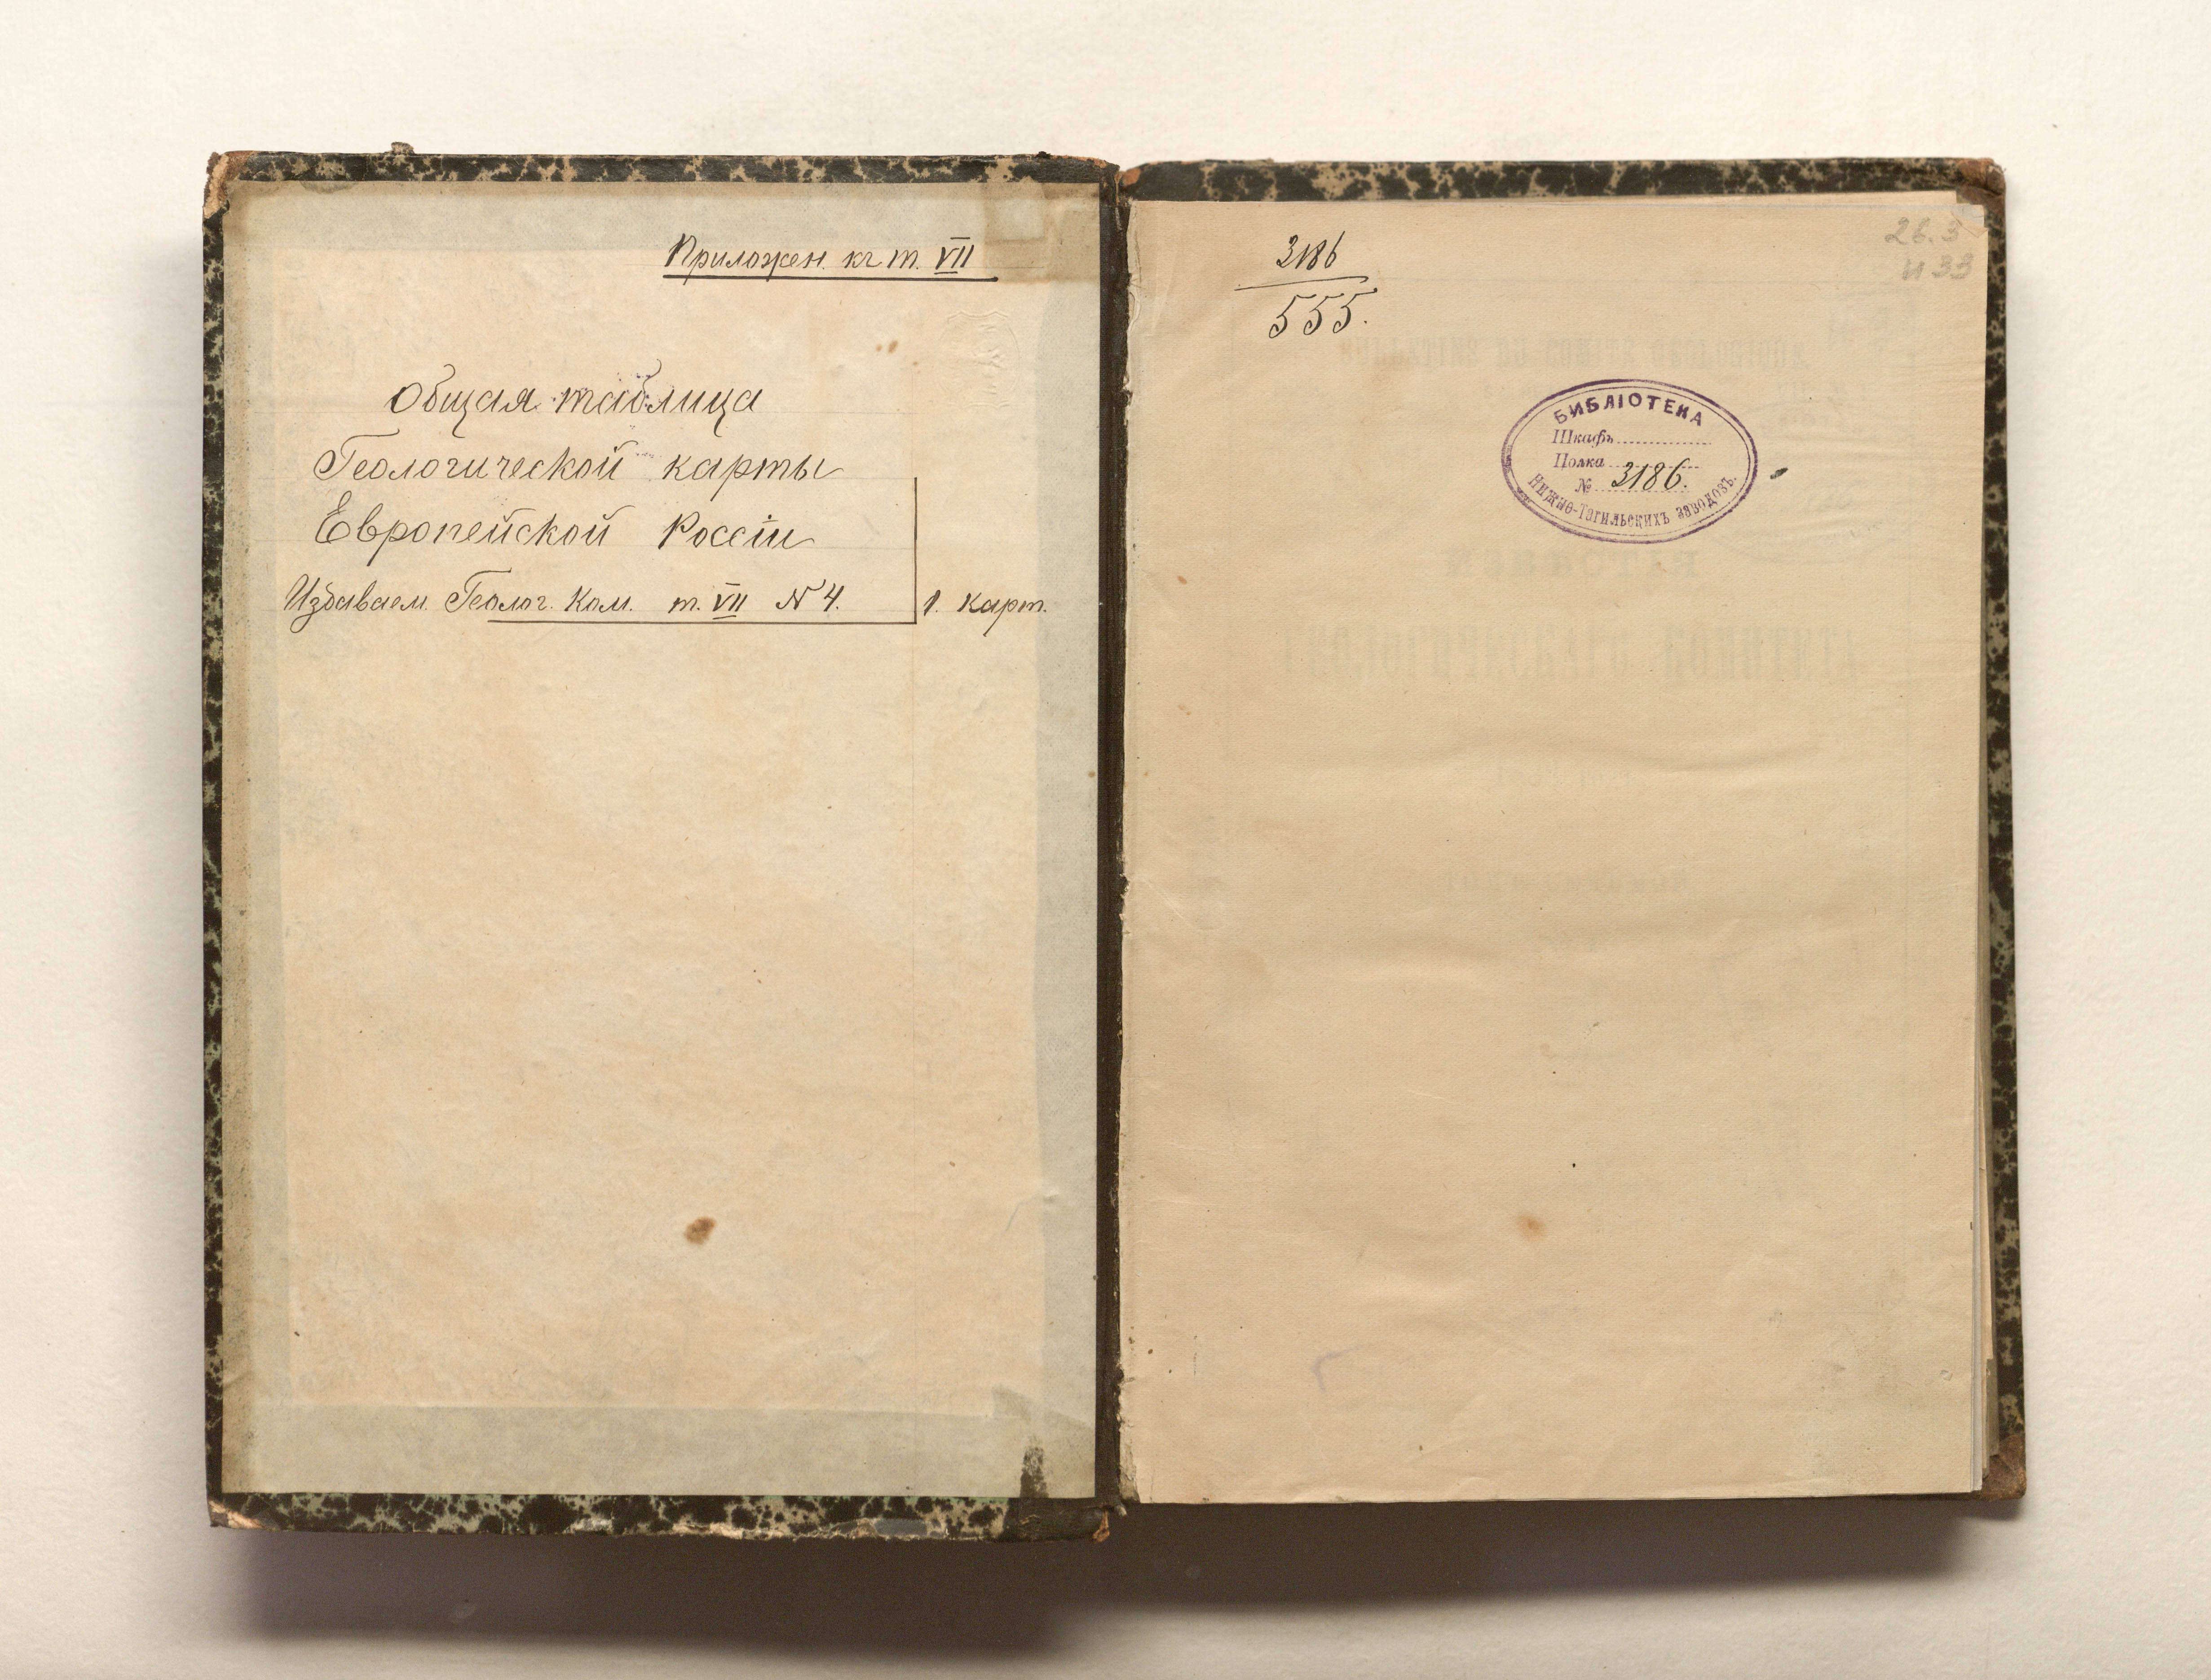 Приложен. къ т. VII
Общая таблица
Геологической карты
Европейской Россіи
Издаваем. Геолог. Ком. т. VII N 4.
1. карт.
3186
555.
26.3
И 33
БИБЛІОТЕКА
Шкафъ
Полка
№ 3186.
Нижне-Тагильскихъ заводовъ.